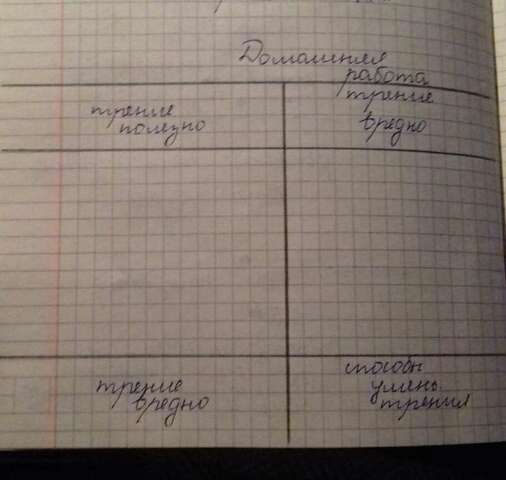 Домашняя
работа
трение
полезно
трение
вредно
трение
вредно
способы
умень.
трения